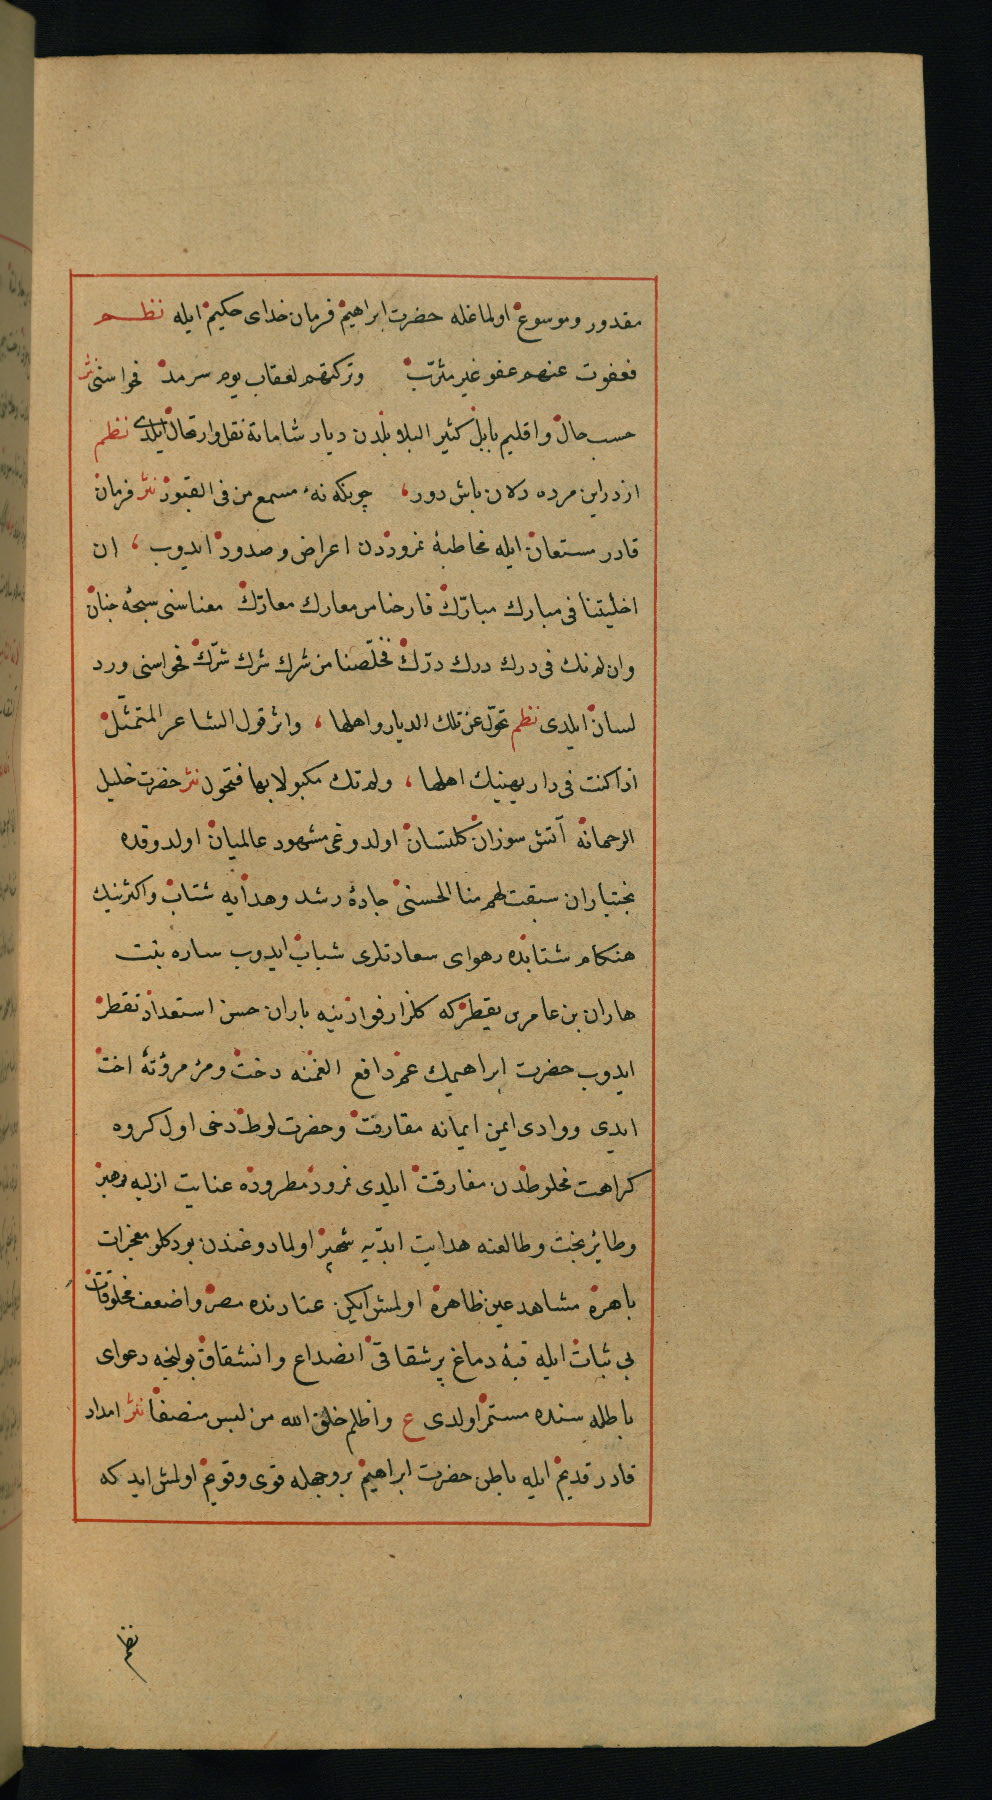 مقدور وموسوع اولماغله حضرت ابراهيم فرمان خداى حكيم ايله نظم
فعفوت عنهم عفو غير مثرّب وتركتهم لعقاب يوم سرمد فحواسنى نثر
حسب حال واقليم بابل كثير البلابلدن ديار شاماتة نقل وارتحال ايلدى نظم
ازدراين مرده دلان باش دور، چونكه نهٔ مسمع من فى القبور نثر فرمان
قادر مستعان ايله مخاطبهٔ نمروددن اعراض وصدود ايدوب ، ان
اخليتنا فى مبارك مبارّك فارحنا من معارك معارّك معناسنى سبحهٔ جنان
وان لم تك فى درك درك درّك فخلّصنا من شرك شرك شرّك فحواسنى ورد
لسان ايلدى نظم تحوّل عن تلك الديار واهلها ، واثر قول الشاعر المتمثّل
اذا كنت فى دار يهينك اهلها ، ولم تك مكبولا بها فتحول نثر حضرت خليل
الرحمانه آتش سوزان كلستان اولدوغى مشهود عالميان اولدوقده
بختياران سبقت لهم منا الحسنى جادهٔ رشد وهدايه شتاب واكثرينك
هنكام شتابنده رهواى سعادتلرى شباب ايدوب ساره بنت
هاران بن عامر من يقطر كه كلزار فوادينه باران حسن استعداد تقطر
ايدوب حضرت ابراهيمك عم دافع الغمنه دخت ومن مروّتة اخت
ايدى ووادى ايمن ايمانه مقارفت وحضرت لوط دخى اول كروه
كراهت مخلوطدن مفارقت ايلدى نمرود مطروده عنايت ازليه رهبر
وطاير بخت وطالعنه هدايت ابديه شهپر اولمادوغندن بودكلو معجزات
باهره مشاهد عين ظاهره اولمش ايكن عنادنده مصر واضعف مخلوقات
بى ثبات ايله قبهٔ دماغ پرشقاقى انصداع وانشقاق بولنجه دعواى
باطله سنده مستمر اولدى ع واظلم خلق الله من ليس منصفا نثر امداد
قادر قديم ايله باطن حضرت ابراهيم بروجهله قوى وقويم اولمش ايدكه
نظم